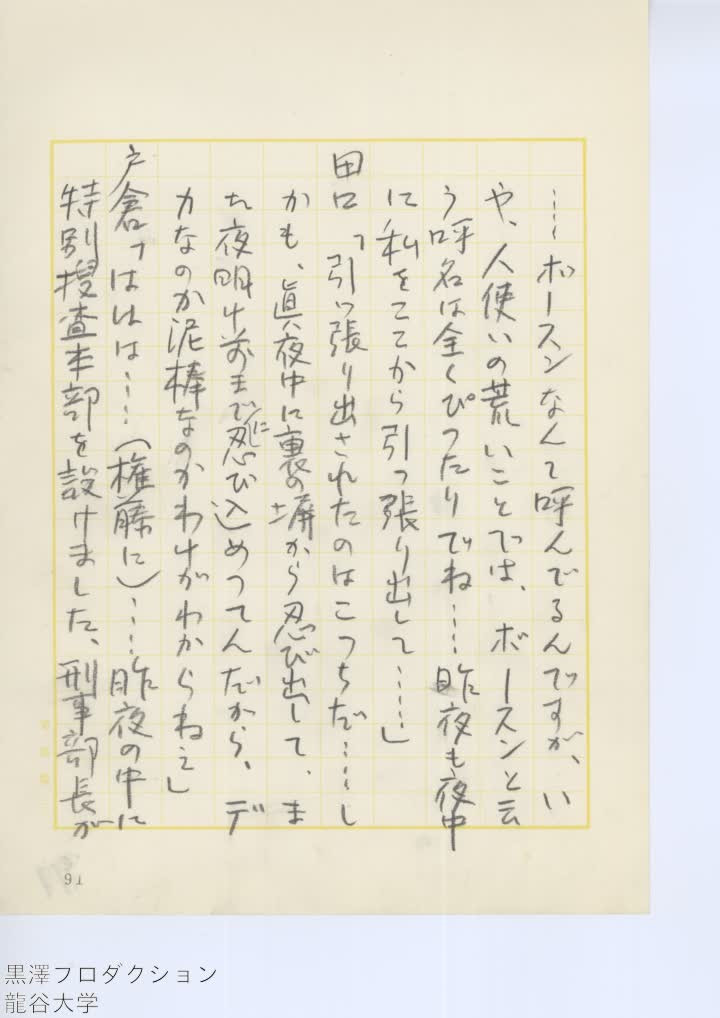 ……ボースンなんて呼んでるんですが、い
や、人使いの荒いことでは、ボースンと云
う呼名は全くぴったりでね……昨夜も夜中
に私をここから引っ張り出して……」
田口「引っ張り出されたのはこっちだ……し
かも、眞夜中に裏の塀から忍び出して、ま
た夜明け前までに忍び込めってんだから、デ
カなのか泥棒なのかわけがわからねえ」
戸倉「ははは……(権藤に)……昨夜の中に
特別捜査本部を設けました、刑事部長が
91
黒澤プロダクション
龍谷大学